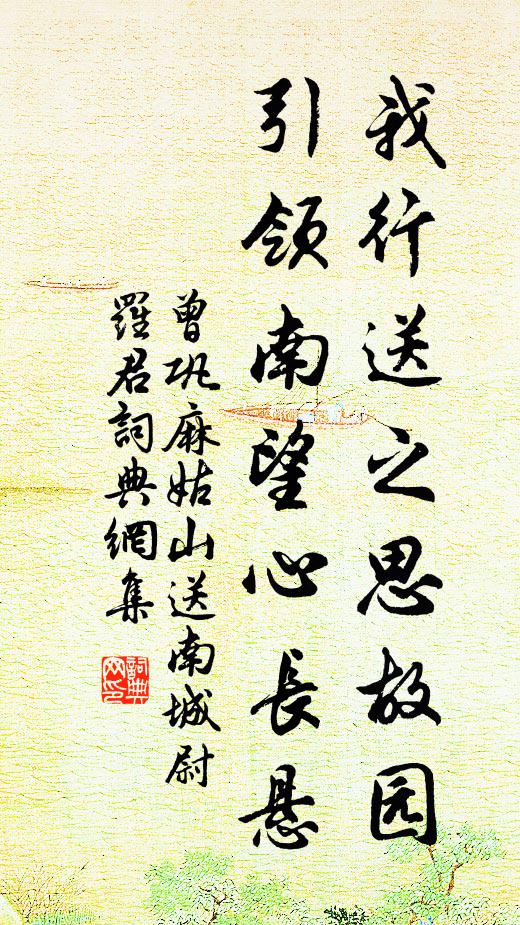 我行送之思故园
引领南望心長悬
曾巩麻姑山送南城尉
羅君詞典網集
詞典网印